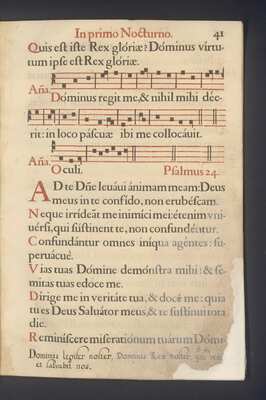 In primo Nocturno. 41
Quis est iste Rex glóriæ? Dóminus virtu-
tum ipse est Rex glóriæ.
Aña.
Dóminus regit me, & nihil mihi dée-
rit: in loco páscuæ ibi me collocáuit.
Aña.
Oculi. Psalmus 24.
AD te Dñe leuáui ánimam meam: Deus
meus in te confido, non erubéscam.
Neque irrídeāt me inimíci mei: étenim vni-
uérsi, qui sústinent te, non confundéntur.
Confundántur omnes iníqua agéntes: su-
peruácuè.
Vias tuas Dómine demónstra mihi: & sé-
mitas tuas edoce me.
Dírige me in veritáte tua, & docè me: quia
tu es Deus Saluátor meus, & te sustínui tota
die.
Reminíscere miseratiónum tuárum Dómi-
Dominus legifer noster, Dominus Rex noster
et salvabit nos.